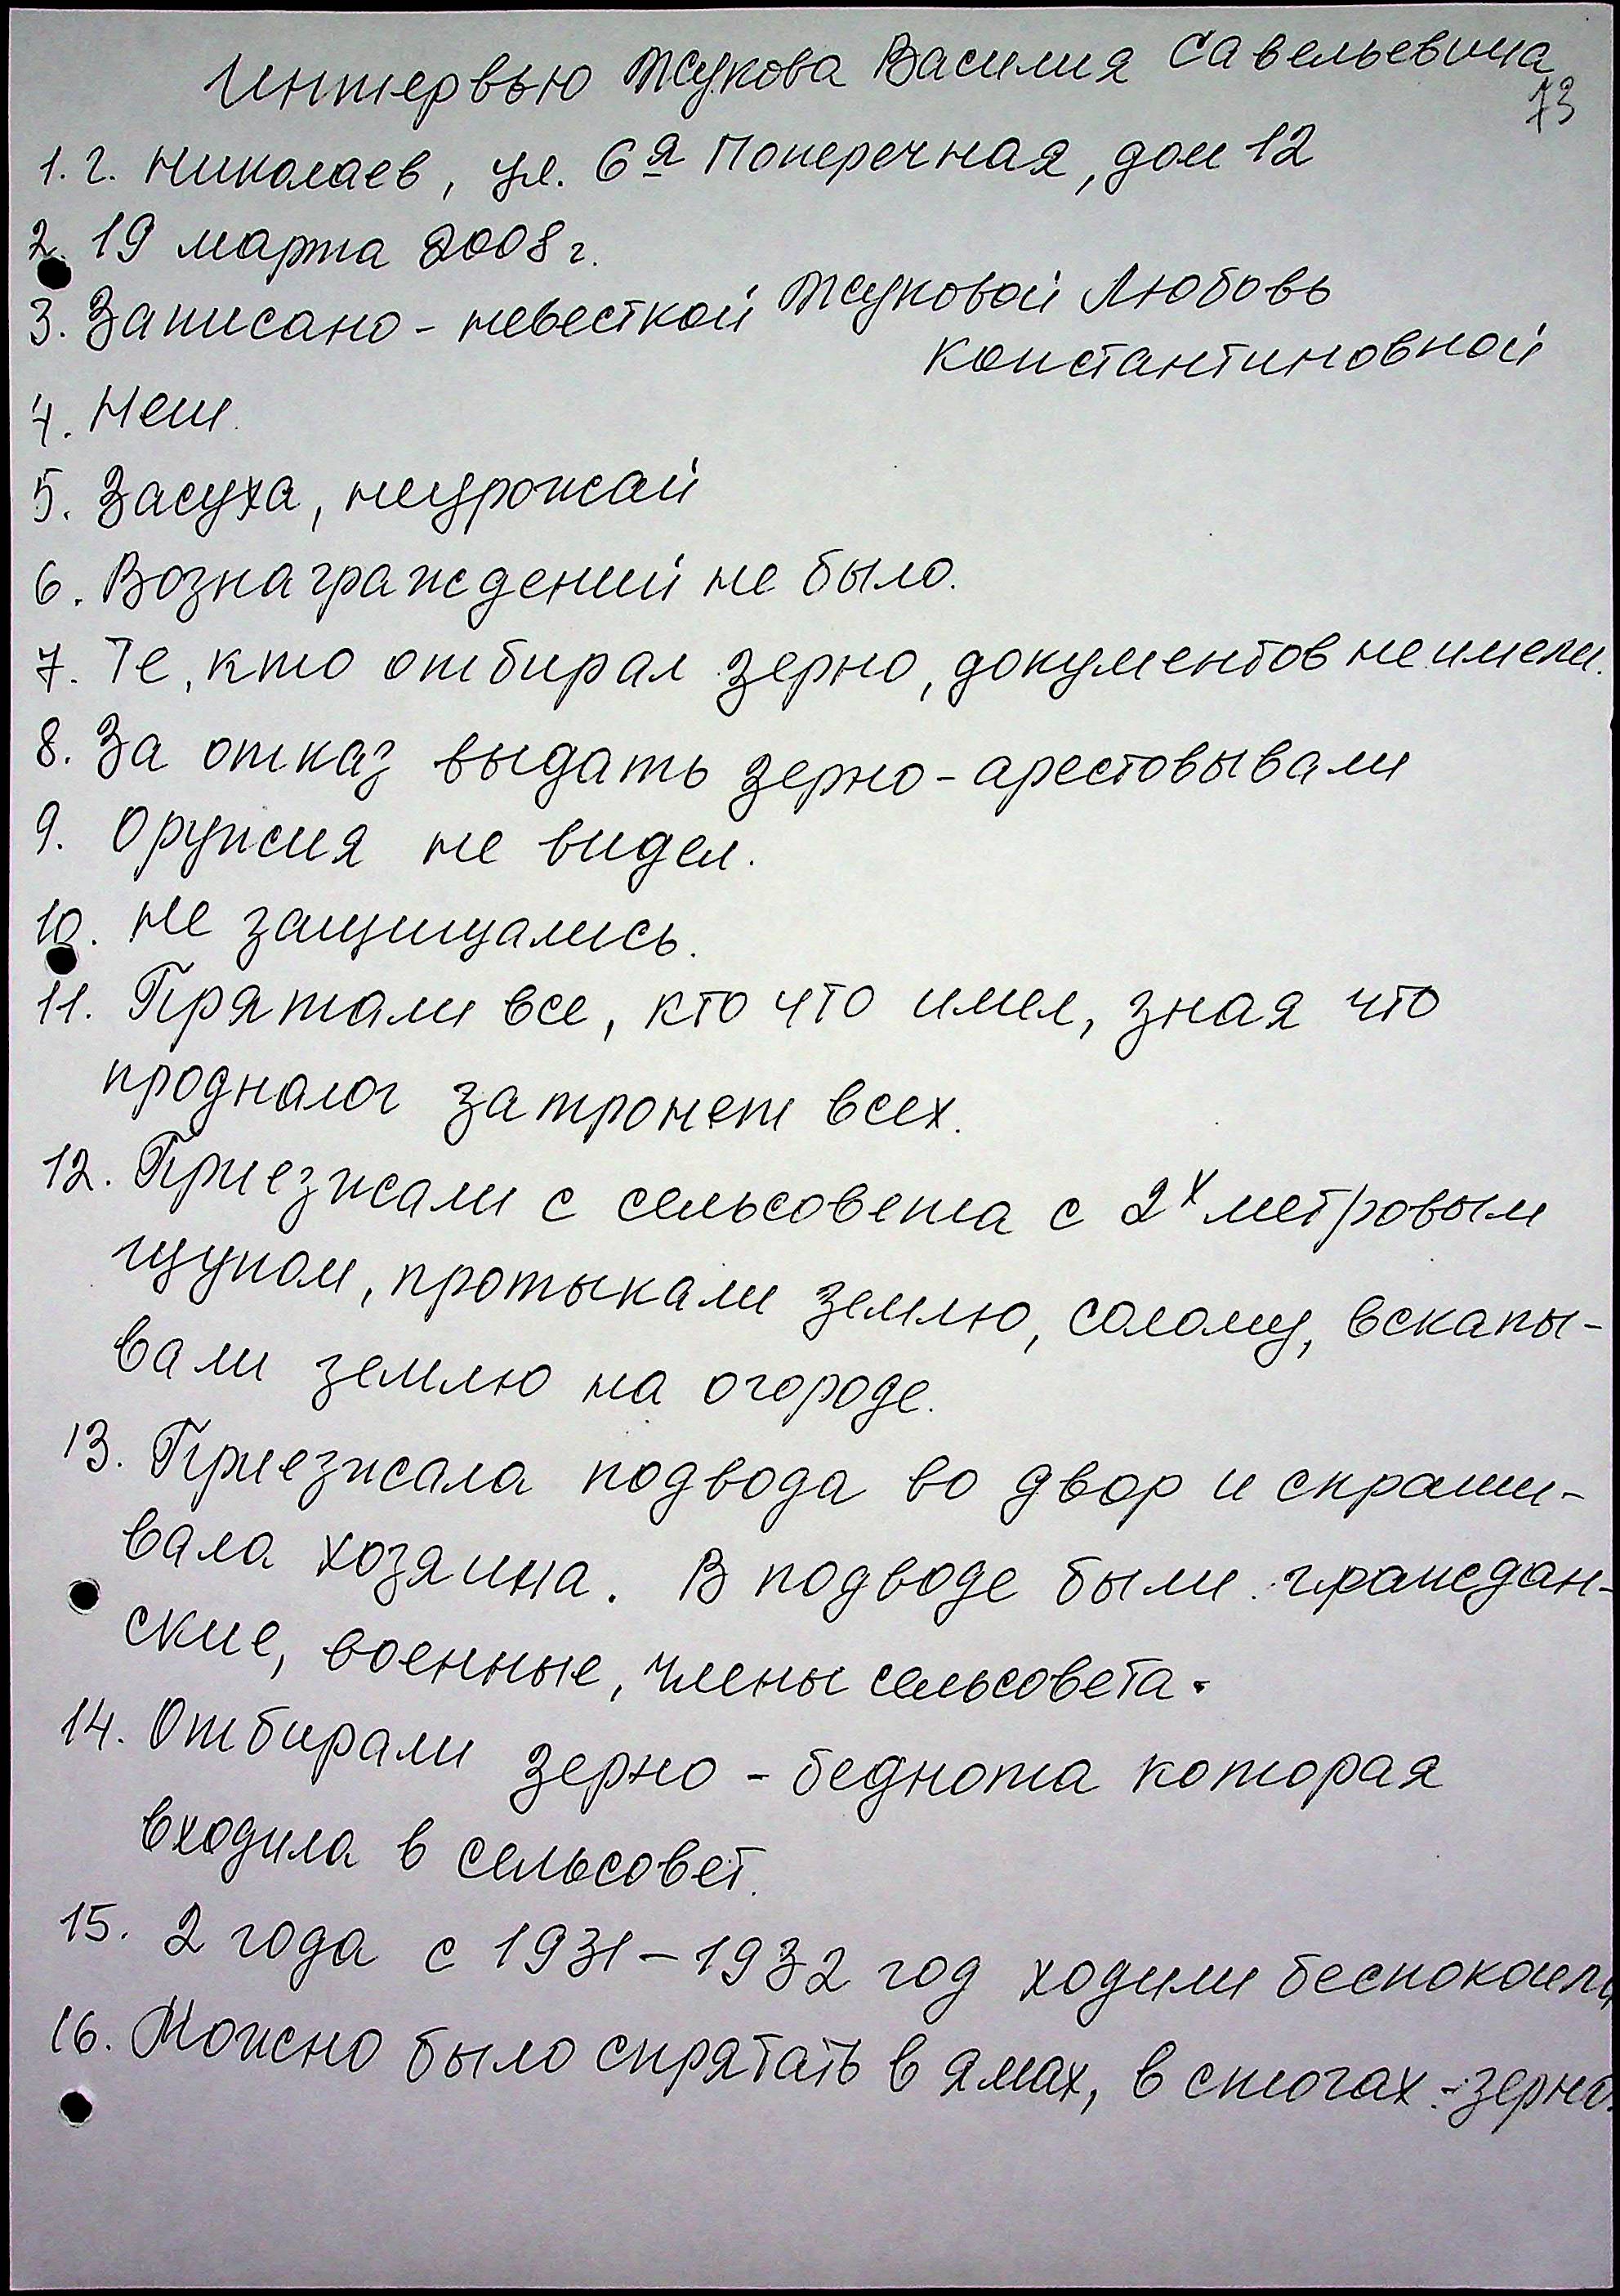 Интервью Жукова Василия Савельевича
73
1. г. Николаев, ул. 6я Поперечная, дом 12
2. 19 марта 2008 г.
3. Записано - невесткой Жуковой Любовь
Константиновной
4. Нет.
5. Засуха, неурожай
6. Вознаграждений не было.
7. Те, кто отбирал зерно, документов не имели.
8. За отказ выдать зерно - арестовывали
9. Оружия не видел.
10. Не защищались.
11. Прятали все, кто что имел, зная что
продналог затронет всех.
12. Приезжали с сельсовета с 2х метровым
щупом, протыкали землю, солому, вскапы-
вали землю на огороде.
13. Приезжала подвода во двор и спраши-
вала хозяина. В подводе были граждан-
ские, военные, члены сельсовета.
14. Отбирали зерно - беднота которая
входила в сельсовет.
15. 2 года с 1931 - 1932 год ходили беспокоили
16. Можно было спрятать в ямах, в стогах - зерно.